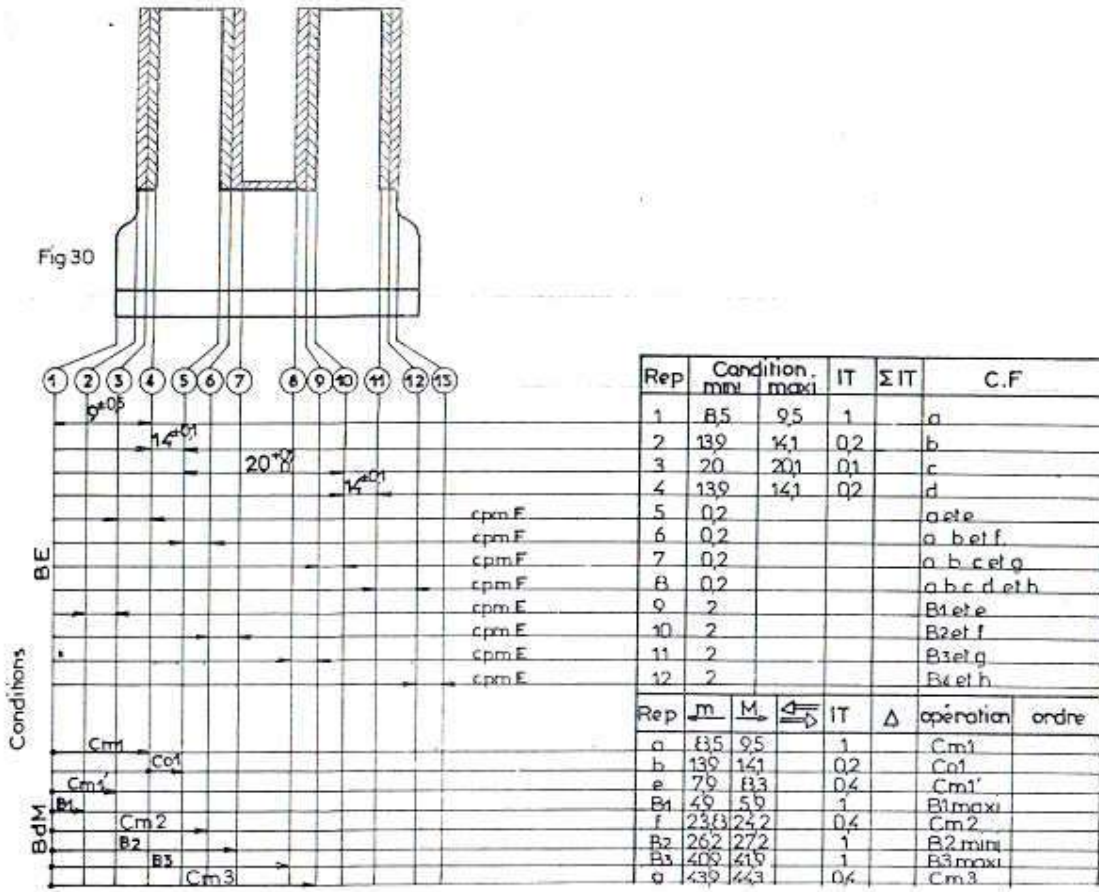 Fig 30
1 2 3 4 5 6 7 8 9 10 11 12 13
9±0,5
14±0,1
20+0,1 0
14±0,1
cpm F
cpm F
cpm F
cpm F
cpm E
cpm E
cpm E
cpm E
BE
Conditions
BdM
Cm1
Co1
Cm1'
B1
Cm2
B2
B3
Cm3
Rep Condition mini maxi IT ΣIT C.F
1 8,5 9,5 1 a
2 13,9 14,1 0,2 b
3 20 20,1 0,1 c
4 13,9 14,1 0,2 d
5 0,2 a et e
6 0,2 a b et f.
7 0,2 a b c et g
8 0,2 a b c d et h
9 2 B1 et e
10 2 B2 et f
11 2 B3 et g
12 2 B4 et h
Rep m M IT Δ opération ordre
a 8,5 9,5 1 Cm1
b 13,9 14,1 0,2 Co1
e 7,9 8,3 0,4 Cm1'
B1 4,9 5,9 1 B1 maxi
f 23,8 24,2 0,4 Cm2
B2 26,2 27,2 1 B2 mini
B3 40,9 41,9 1 B3 maxi
g 43,9 44,3 0,4 Cm3